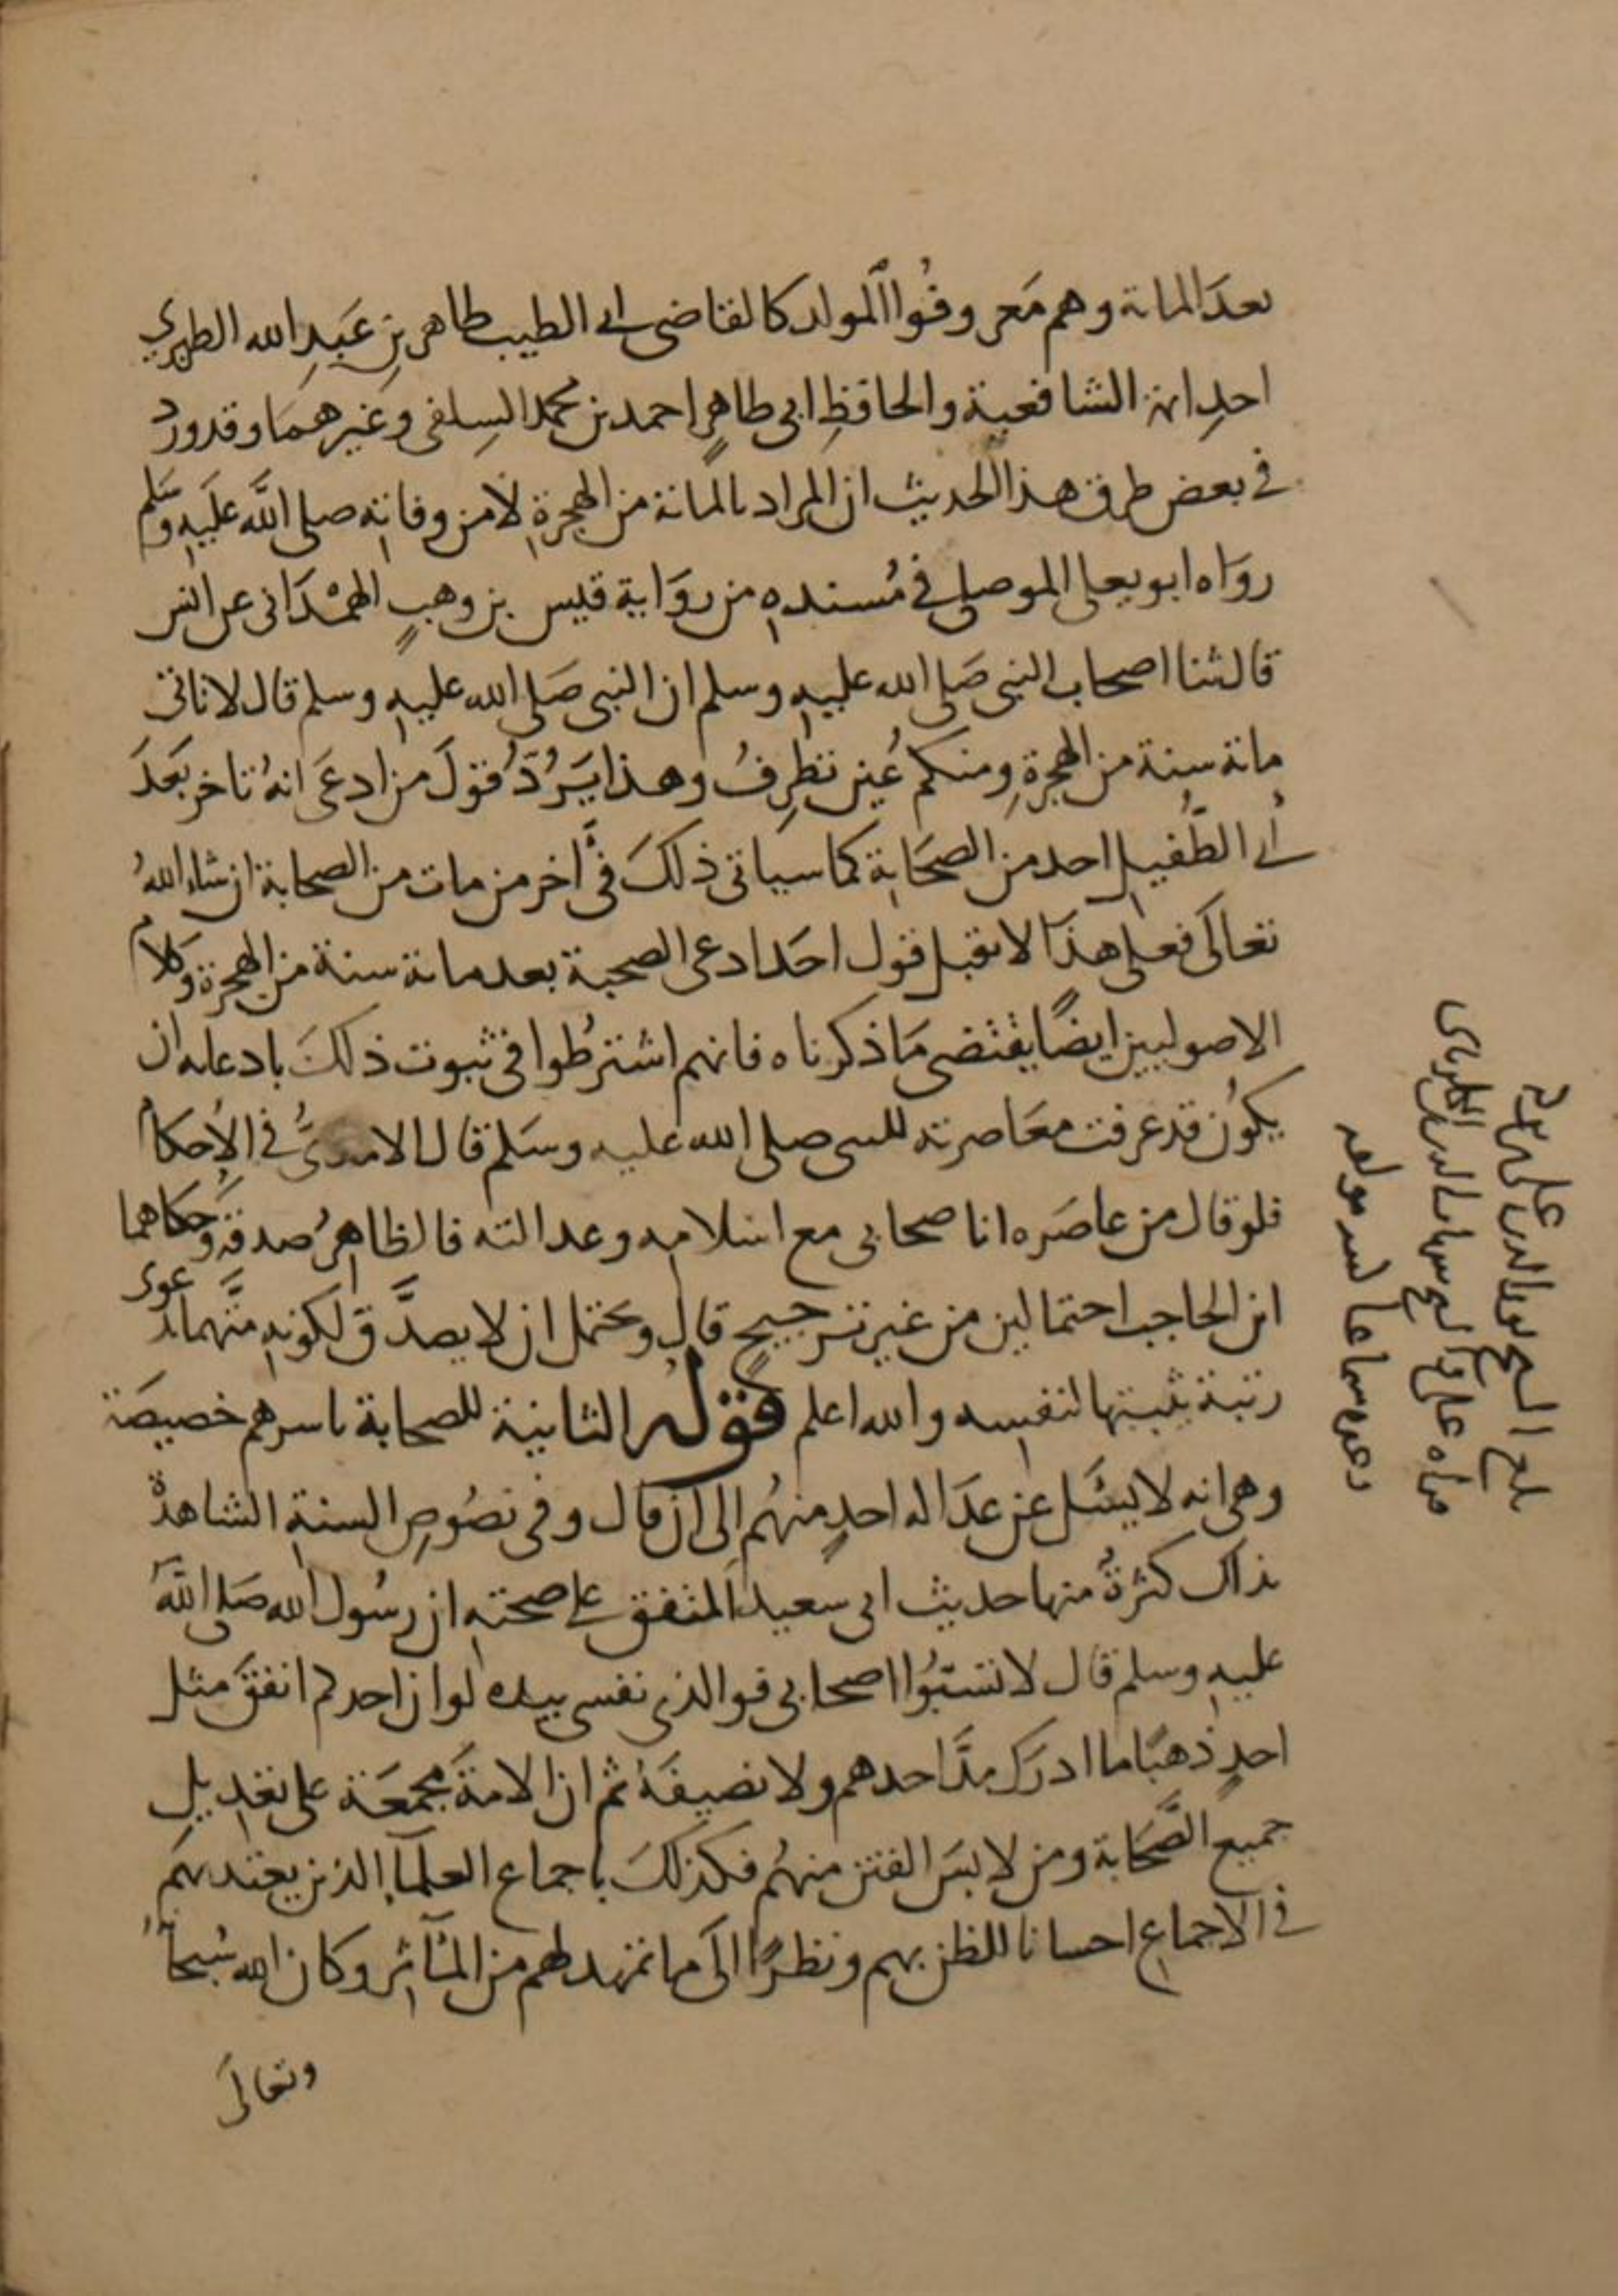 بعدَ المائة وهم مَعروفُوا المولد كالقاضى ابى الطيب طاهر بنِ عَبدِ الله الطبري
احدِ ائمة الشافعية والحافظِ ابى طاهرٍ احمد بن محمد السِلفى وغيرهمَا وقد ورد
فى بعض طرق هذا الحديث ان المراد بالمائة من الهجرةِ لا من وفاتهِ صلى اللَّه عليَهِ وسَلم
روَاه ابو يعلى الموصلى فى مُسندهِ من روَاية قيس بن وهبٍ الهمْدَانى عن انس
قال ثنا اصحاب النبى صَلى الله عليهِ وسلم ان النبى صَلى الله عليهِ وسلم قال لا تاتى
مائة سنة من الهجرةِ ومنكم عَين تطرِفُ وهذا يَرُدّ قولَ من ادعَى انهُ تاخر بَعدَ
ابى الطُّفيلِ احد من الصحَابة كما سياتى ذلكَ فى آخر من مات من الصحابة ان شاء اللهُ
تعالَى فعلى هذَا لا يقبل قول احَد ادعى الصحبة بعد مائة سنة من الهجرة وَكلام
الاصوليين ايضًا يقتضى مَا ذكرناه فانهم اشترطُوا فى ثبوت ذلكَ بادعائه ان
يكُون قد عرفت معَاصرته للنبى صلى الله عليه وسَلم قال الامدىُّ فى الإحكام
فلو قال من عاصَره انا صحابى مع اسلامه وعدالته فالظاهرُ صدقه وَحكاهما
ابن الحاجب احتمالين من غير ترجيحٍ قال ويحتمل ان لا يصدَّق لكونهِ متَّهما بدعوى
رتبة يثبتها لنفسه والله اعلم قوله الثانية للصحابة باسرهم خصيصَة
وهى انه لا يسْئَل عن عدَالة احدٍ منهُم إلى ان قال وفى نصُوصِ السنةِ الشاهدة
بذلك كثرةُ منها حديث ابى سعيد المتفق على صحتهِ ان رسُول الله صَلى اللَّهُ
عليهِ وسلم قال لا تسبُّوا اصحابى فو الذى نفسى بيده لو ان احدكم انفقَ مثل
احدٍ ذهبًا ما ادرَك مدَّ احدهم ولا نصيفَهُ ثم ان الامةَ مجمعَة على تعديل
جميع الصَّحَابة ومن لابسَ الفتن منهُم فكذلكَ باجماع العلمآء الذين يعتد بهم
فى الاجماع احسانا للظن بهم ونظرًا الَى ما تمهد لهم من المآثر وكان الله سُبحانهُ
وتعالَى
بلغ الشيخ نور الدين على